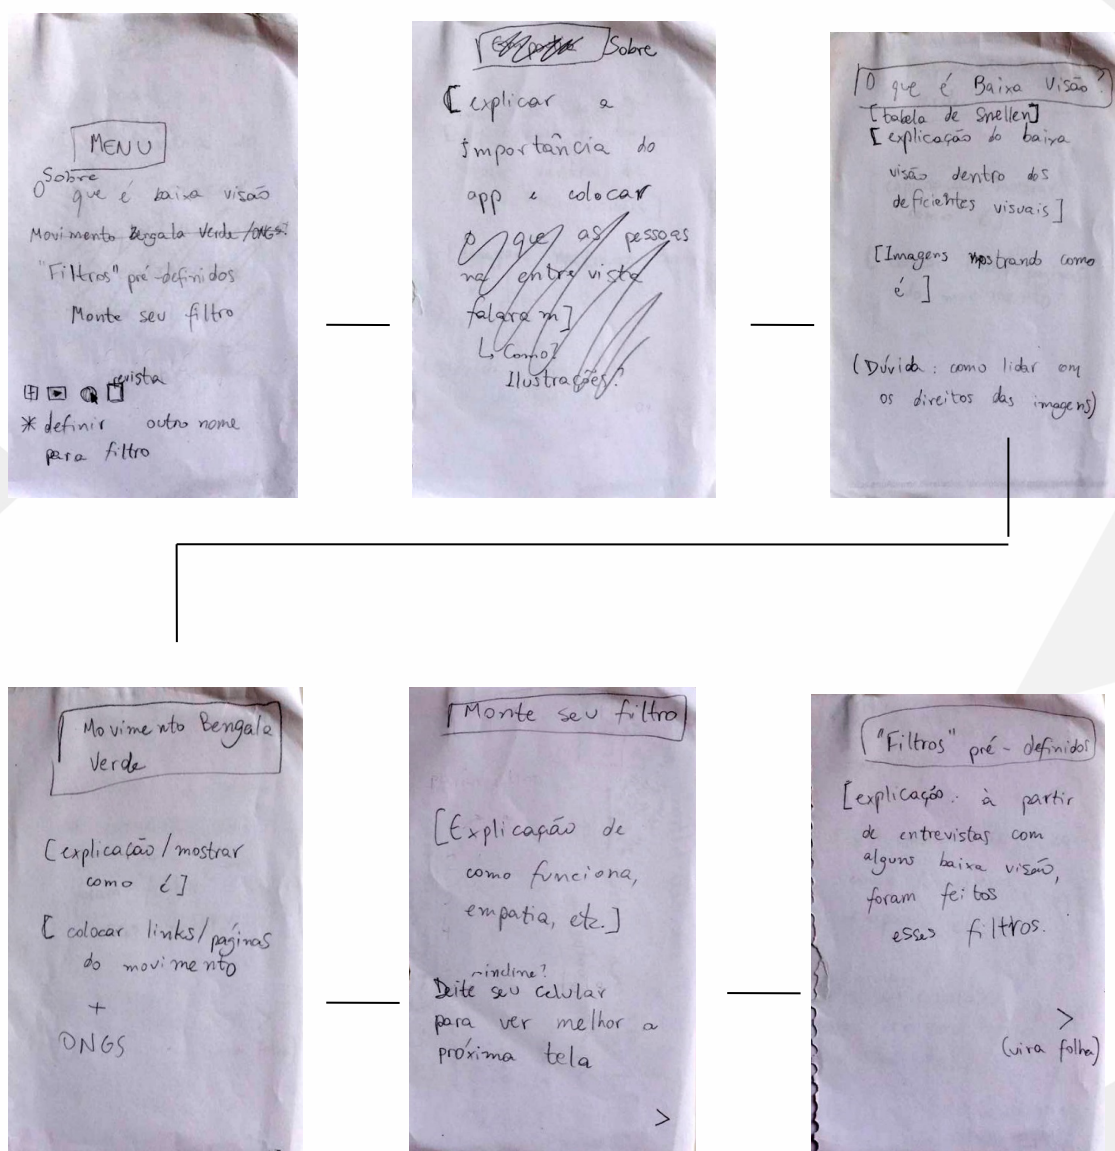 MENU
Sobre
O que é baixa visão
Movimento Bengala Verde /ONGs?
"Filtros" pré-definidos
Monte seu filtro
revista
* definir outro nome
para filtro
Sobre
[explicar a
importância do
app e colocar
o que as pessoas
na entrevista
falaram]
↳ Como?
Ilustrações?
O que é Baixa Visão?
[tabela de Snellen]
[explicação do baixa
visão dentro dos
deficientes visuais]
[Imagens mostrando como
é]
(Dúvida: como lidar com
os direitos das imagens)
Movimento Bengala
Verde
[explicação/mostrar
como é]
[colocar links/páginas
do movimento
+
ONGS
Monte seu filtro
[Explicação de
como funciona,
empatia, etc.]
incline?
Deite seu celular
para ver melhor a
próxima tela
>
"Filtros" pré-definidos
[explicação: à partir
de entrevistas com
alguns baixa visão,
foram feitos
esses filtros.
>
(vira folha)